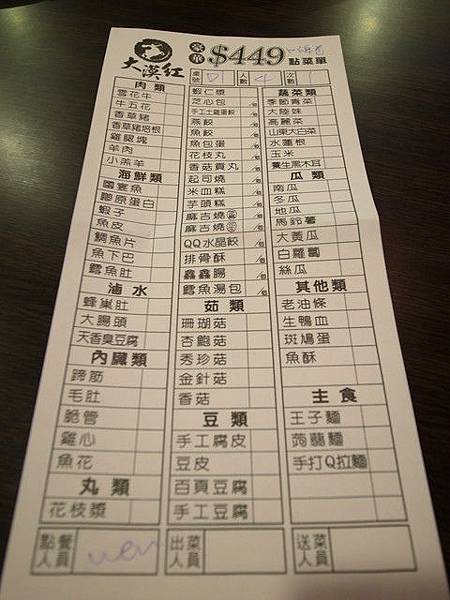 大漠紅
豪華 $449 點菜單
桌號 D1 人數 4 次數
肉類
雪花牛
牛五花
香草豬
香草豬培根
雞腿塊
羊肉
小羔羊
海鮮類
國宴魚
膠原蛋白
蝦子
魚皮
鯛魚片
魚下巴
鱈魚肚
滷水
蜂巢肚
大腸頭
天香臭豆腐
內臟類
蹄筋
毛肚
脆管
雞心
魚花
丸類
花枝漿
蝦仁漿
芝心包
手工土雞蛋餃
燕餃
魚餃
魚包蛋
花枝丸
香菇貢丸
起司燒
米血糕
芋頭糕
麻吉燒
麻吉燒
QQ水晶餃
排骨酥
鑫鑫腸
鱈魚湯包
菇類
珊瑚菇
杏鮑菇
秀珍菇
金針菇
香菇
豆類
手工腐皮
豆皮
百頁豆腐
手工豆腐
蔬菜類
季節青菜
大陸妹
高麗菜
山東大白菜
水蓮根
玉米
養生黑木耳
瓜類
南瓜
冬瓜
地瓜
馬鈴薯
大黃瓜
白蘿蔔
絲瓜
其他類
老油條
生鴨血
斑鳩蛋
魚酥
主食
王子麵
蒟蒻麵
手打Q拉麵
點餐人員
出菜人員
送菜人員